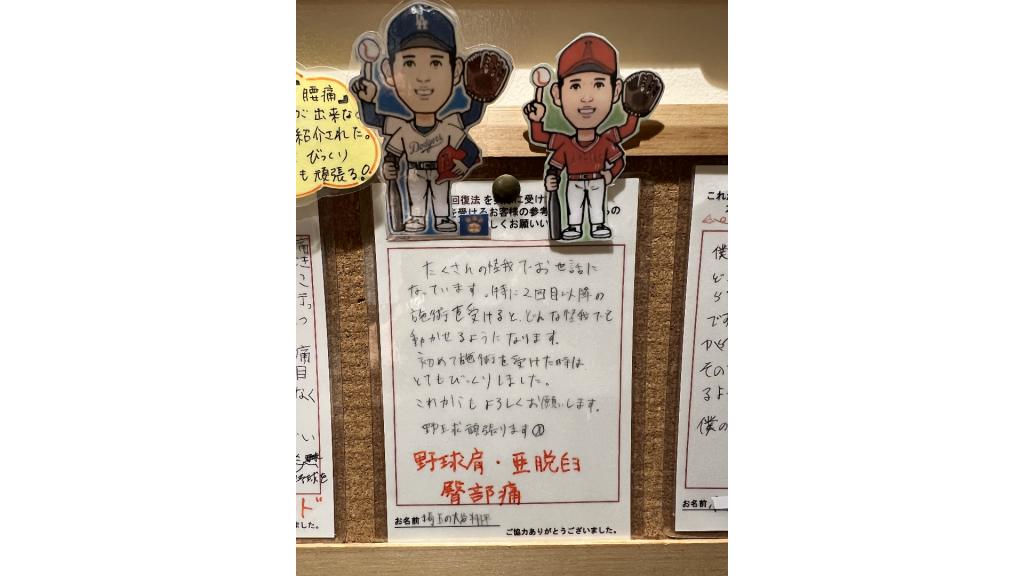 LA
Dodgers
『腰痛』
が出来なく
紹介された。
びっくり
も頑張る!
回復法を
に受け
を受けるお客様の参考
しくお願いい
たくさんの怪我でお世話に
なっています。特に2回目以降の
施術を受けると、どんな怪我でも
動かせるようになります。
初めて施術を受けた時は
とてもびっくりしました。
これからもよろしくお願いします。
野球頑張ります
野球肩・亜脱臼
臀部痛
お名前 埼玉の大谷翔平
ご協力ありがとうございました。
痛
目
なく
い
野球を
ド
ました。
これ
僕
ど
です
その
るよ
僕の
お名前